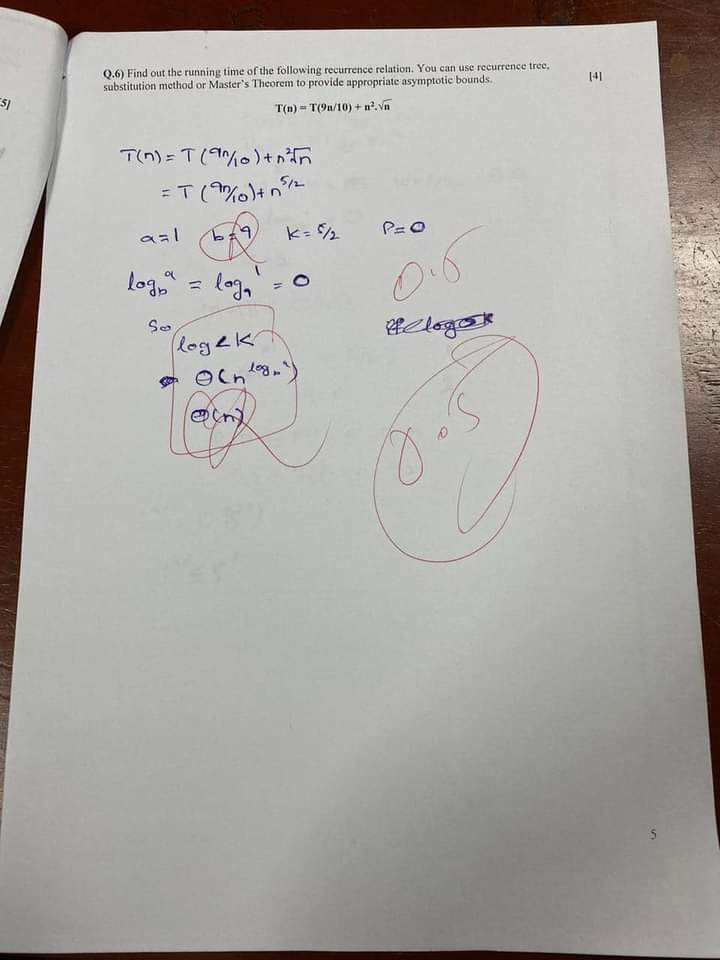 5]
Q.6) Find out the running time of the following recurrence relation. You can use recurrence tree,
substitution method or Master's Theorem to provide appropriate asymptotic bounds. [4]
T(n) = T(9n/10) + n².√n
T(n) = T(9n/10) + n²√n
= T(9n/10) + n^5/2
a=1 b=9 K=5/2 P=0
log_b^a = log_9^1 = 0
0.5
So
log<K
Θ(n^log_b^a)
Θ(n)
0.5
5